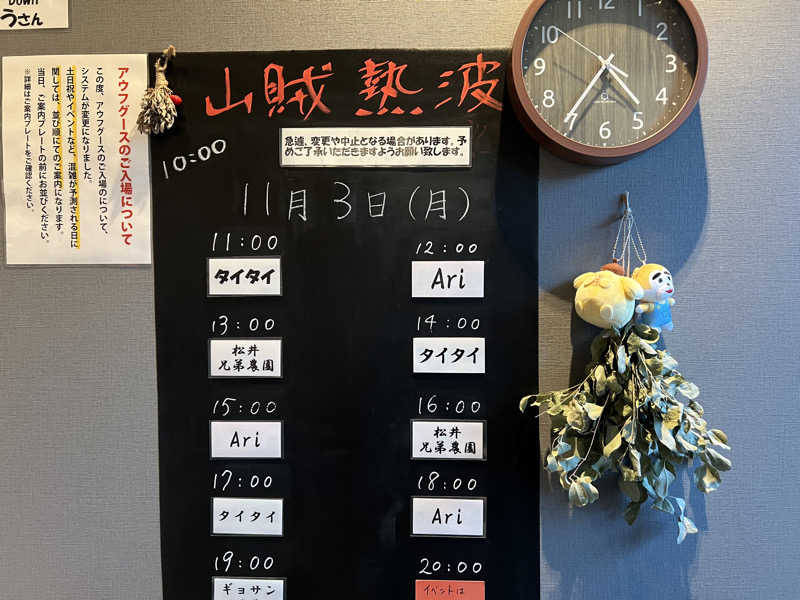 DOWN
うさん
アウフグースのご入場について
この度、アウフグースのご入場のについて、
システムが変更になりました。
土日祝やイベントなど、混雑が予測される日に
関しては、並び順にてのご案内になります。
当日、ご案内プレートの前にお並びください。
※詳細はご案内プレートをご確認ください。
山賊熱波
急遽、変更や中止となる場合があります。予
めご了承いただきますようお願い致します。
10:00
11月3日(月)
11:00
タイタイ
12:00
Ari
13:00
松井
兄弟農園
14:00
タイタイ
15:00
Ari
16:00
松井
兄弟農園
17:00
タイタイ
18:00
Ari
19:00
ギョサン
20:00
イベントは
10 11 12 1 2 3 4 5 6 7 8 9